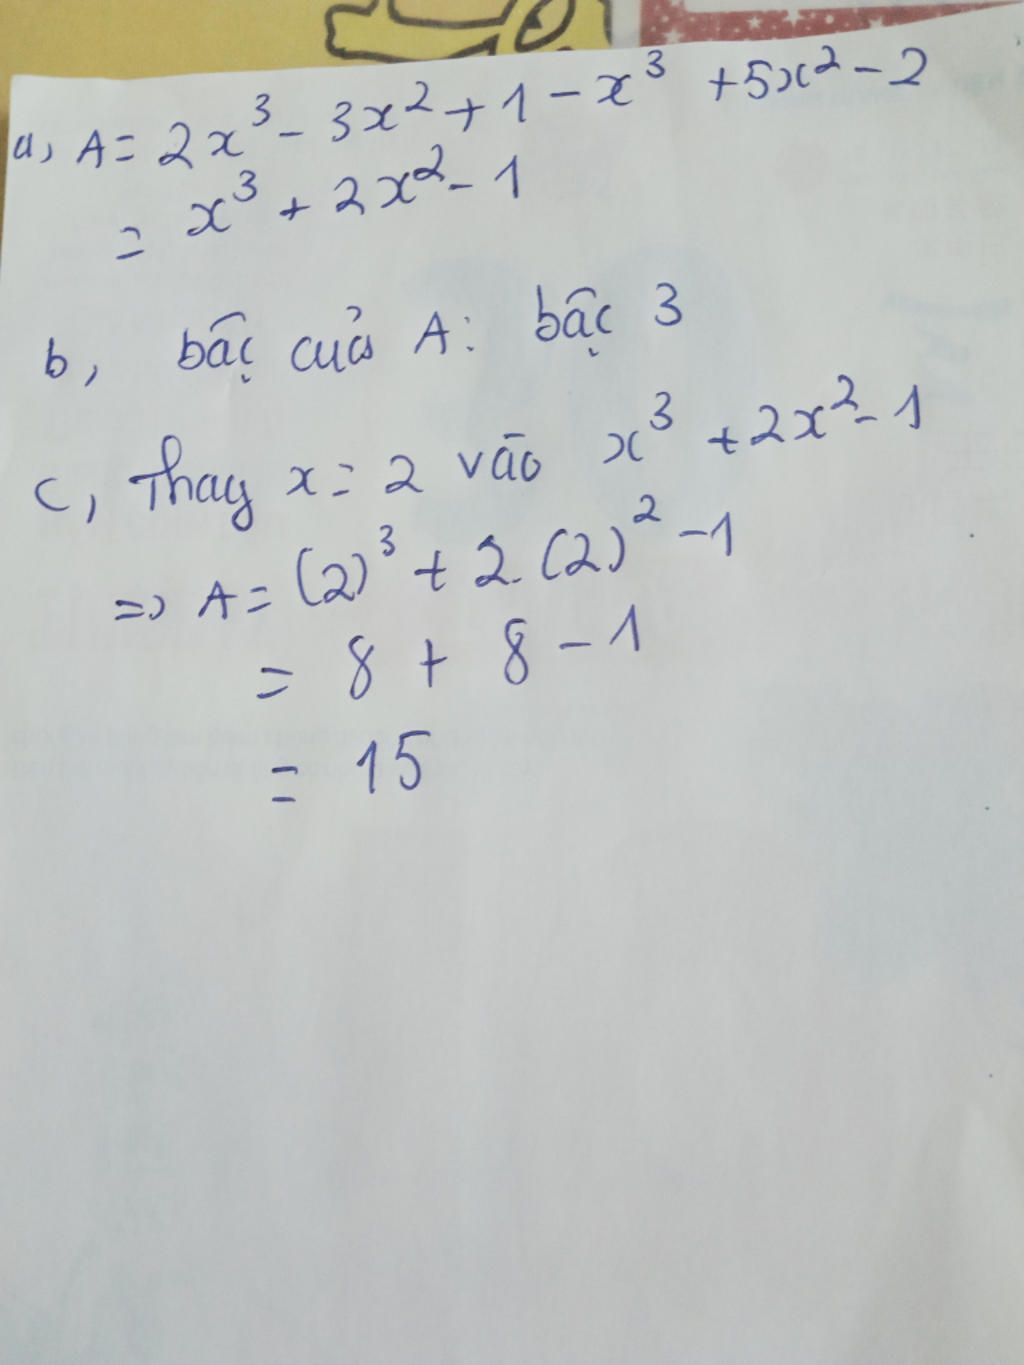 a, A = 2x³ - 3x² + 1 - x³ + 5x² - 2
= x³ + 2x² - 1
b, bậc của A: bậc 3
c, Thay x = 2 vào x³ + 2x² - 1
=> A = (2)³ + 2.(2)² - 1
= 8 + 8 - 1
= 15